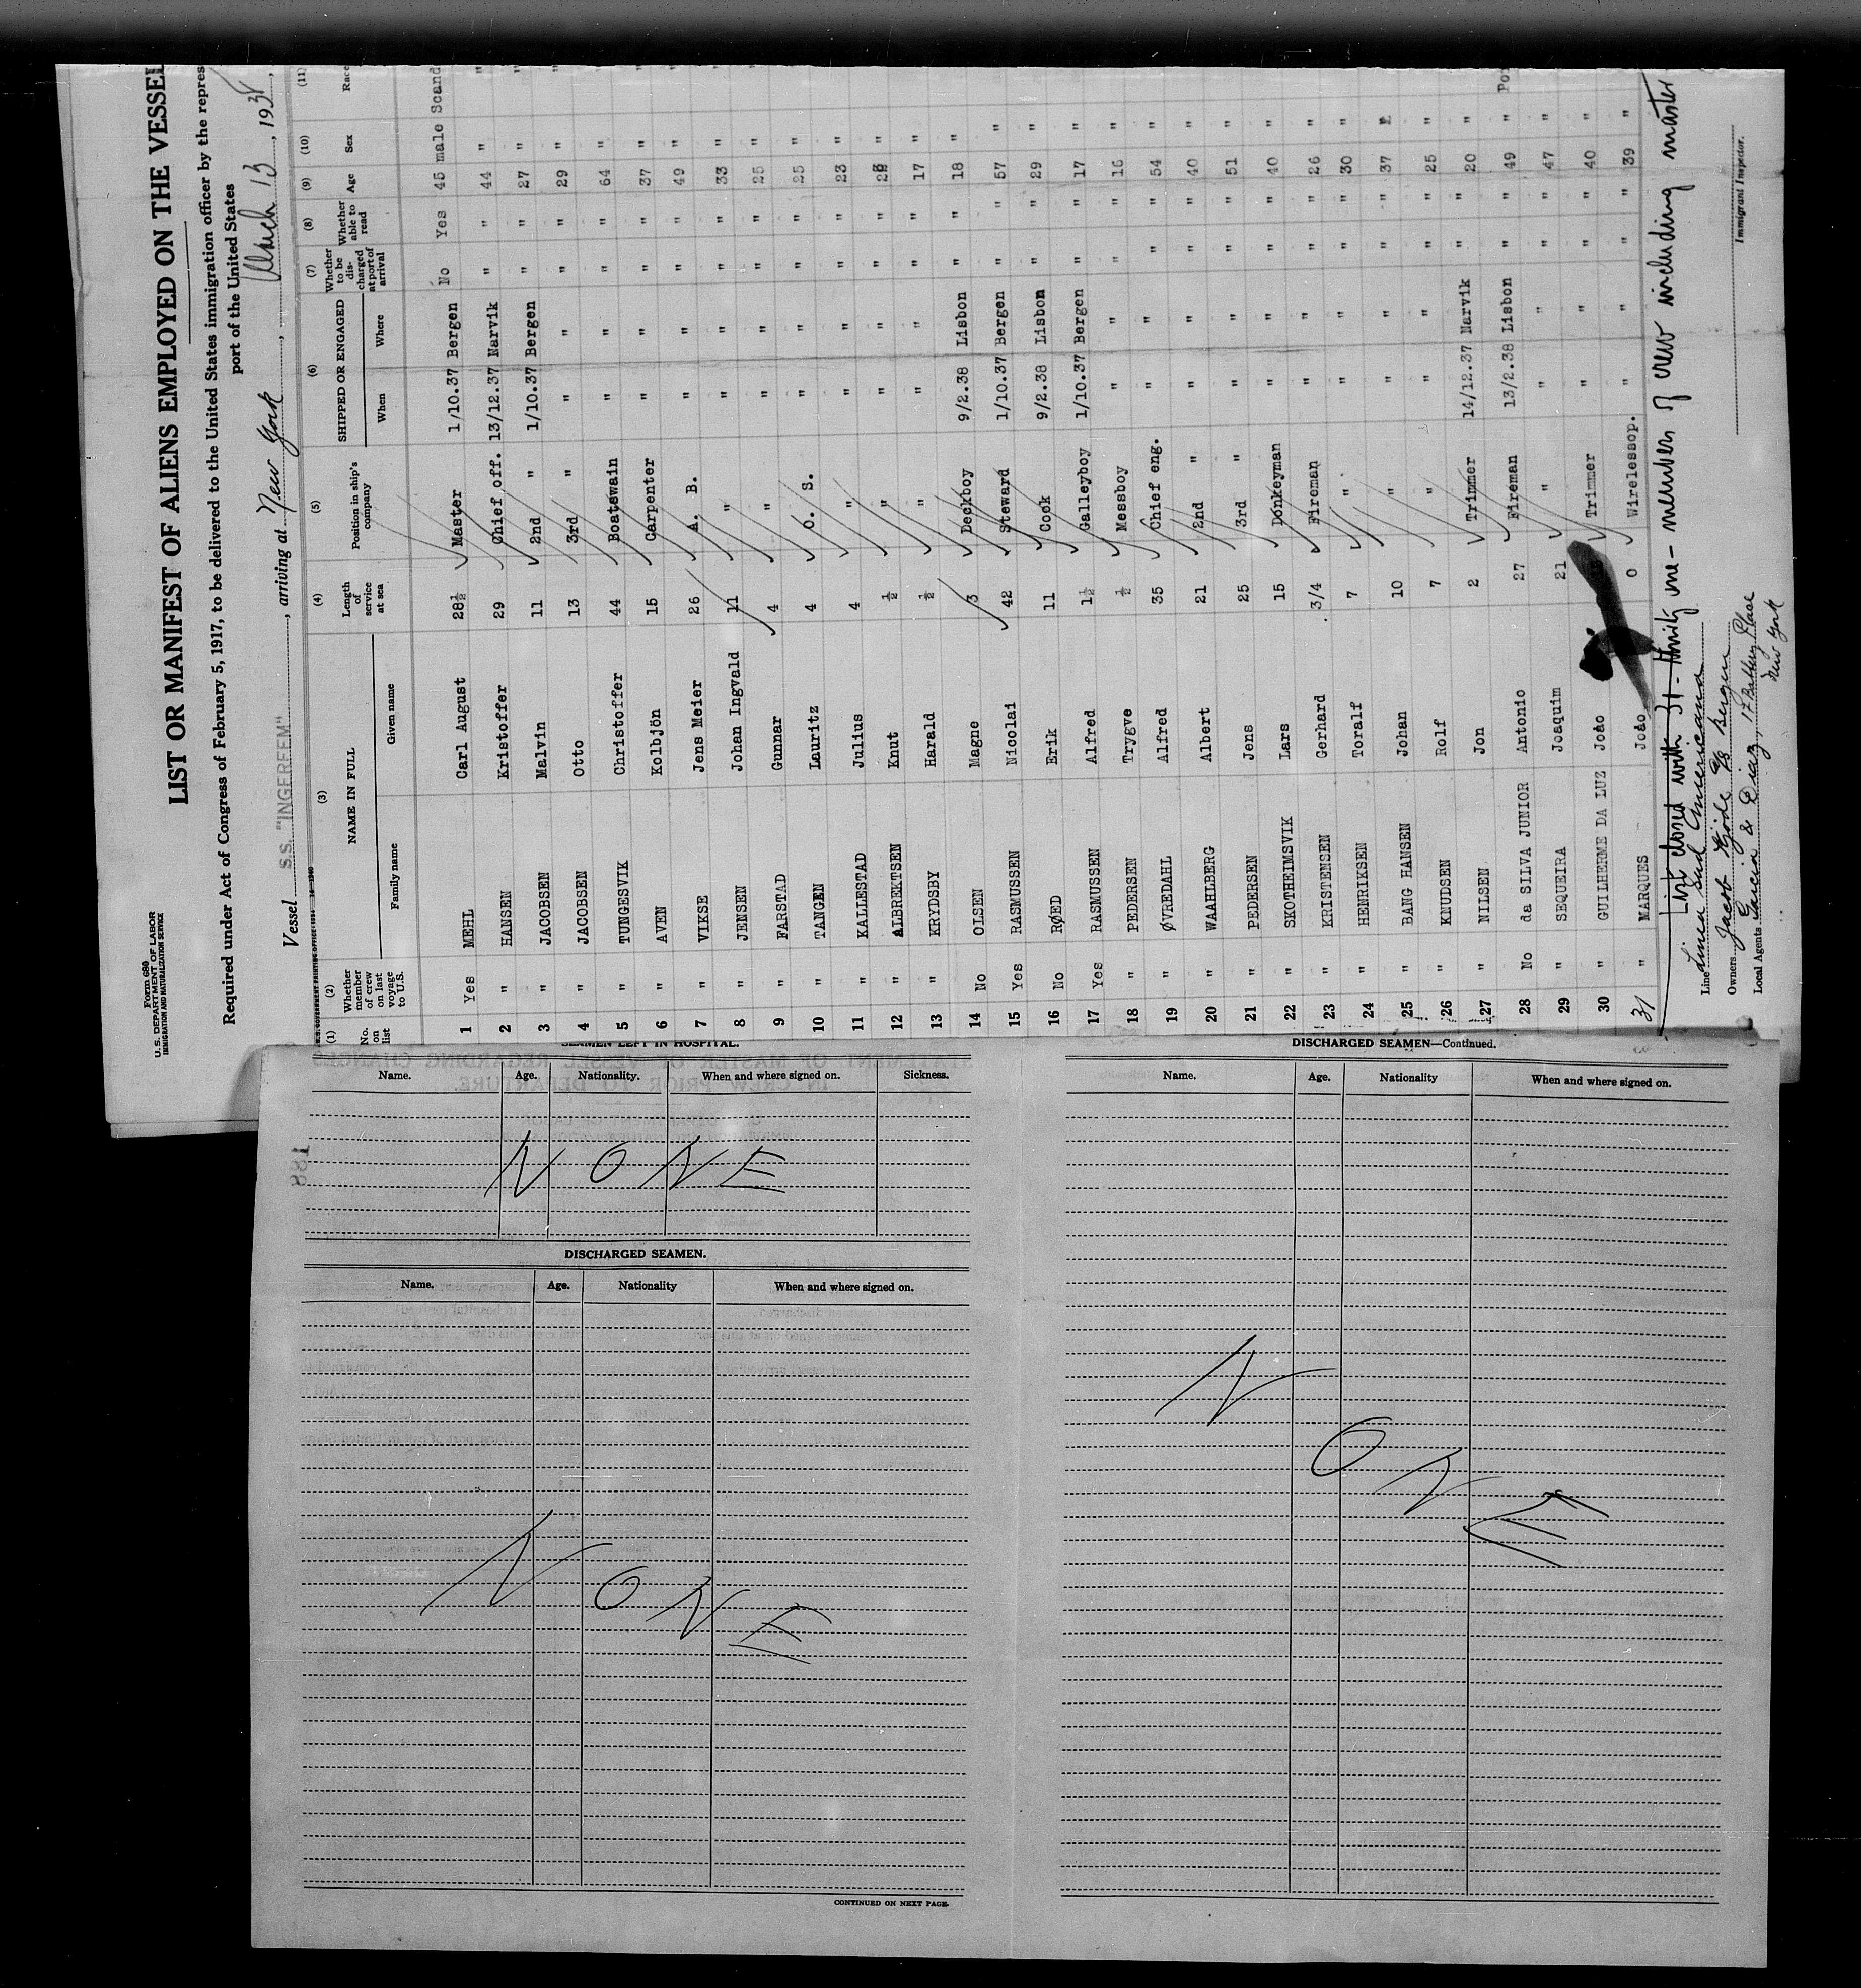 Form 680
U. S. DEPARTMENT OF LABOR
IMMIGRATION AND NATURALIZATION SERVICE
LIST OR MANIFEST OF ALIENS EMPLOYED ON THE VESSEL
Required under Act of Congress of February 5, 1917, to be delivered to the United States immigration officer by the repres
port of the United States
Vessel S.S. "INGERFEM", arriving at New York, March 13, 1938,
(1) (2) (3) (4) (5) (6) (7) (8) (9) (10) (11)
No. on list Whether member of crew on last voyage to U.S. NAME IN FULL Family name Given name Length of service at sea Position in ship's company SHIPPED OR ENGAGED When Where Whether to be discharged at port of arrival Whether able to read Age Sex Race
1 Yes MEHL Carl August 28½ Master 1/10.37 Bergen No Yes 45 male Scand
2 " HANSEN Kristoffer 29 Chief off. 13/12.37 Narvik " " 44 " "
3 " JACOBSEN Malvin 11 2nd " 1/10.37 Bergen " " 27 " "
4 " JACOBSEN Otto 13 3rd " " " " " 29 " "
5 " TUNGESVIK Christoffer 44 Boatswain " " " " 64 " "
6 " AVEN Kolbjön 15 Carpenter " " " " 37 " "
7 " VIKSE Jens Meier 26 A. B. " " " " 49 " "
8 " JENSEN Johan Ingvald 11 " " " " " 33 " "
9 " FARSTAD Gunnar 4 " " " " " 25 " "
10 " TANGEN Lauritz 4 O. S. " " " " 25 " "
11 " KALLESTAD Julius 4 " " " " " 23 " "
12 " ALBREKTSEN Knut ½ " " " " " "
13 " KRYDSBY Harald ½ " " " " " 17 "
14 No OLSEN Magne 3 Deckboy 9/2.38 Lisbon " " 18 "
15 Yes RASMUSSEN Nicolai 42 Steward 1/10.37 Bergen " " 57 "
16 No RØED Erik 11 Cook 9/2.38 Lisbon " " 29 "
17 Yes RASMUSSEN Alfred 1½ Galleyboy 1/10.37 Bergen " " 17 "
18 " PEDERSEN Trygve ½ Messboy " " " " 16 "
19 " ØVREDAHL Alfred 35 Chief eng. " " " " 54 "
20 " WAAHLBERG Albert 21 2nd " " " " " 40 "
21 " PEDERSEN Jens 25 3rd " " " " " 51 "
22 " SKOTHEIMSVIK Lars 15 Donkeyman " " " " 40 "
23 " KRISTENSEN Gerhard 3/4 Fireman " " " " 26 "
24 " HENRIKSEN Toralf 7 " " " " " 30 "
25 " BANG HANSEN Johan 10 " " " " " 37 "
26 " KNUDSEN Rolf 7 " " " " " 25 "
27 " NILSEN Jon 2 Trimmer 14/12.37 Narvik " " 20 "
28 No da SILVA JUNIOR Antonio 27 Fireman 13/2.38 Lisbon " " 49 " Por
29 " SEQUEIRA Joaquim 21 " " " " " 47 "
30 " GUILHERME DA LUZ João Trimmer " " " " 40 "
31 " MARQUES João 0 Wirelessop. " " " " 39 "
List closed with 31 - thirty one - members of crew including master
Line Linea Sud Americana
Owners Jacob Kjöde A/S Bergen
Local Agents Garcia & Diaz, 17 Battery Place
New York
Immigrant Inspector.
SEAMEN LEFT IN HOSPITAL.
Name. Age. Nationality. When and where signed on. Sickness.
NONE
188
DISCHARGED SEAMEN.
Name. Age. Nationality When and where signed on.
NONE
CONTINUED ON NEXT PAGE.
DISCHARGED SEAMEN—Continued.
Name. Age. Nationality When and where signed on.
NONE